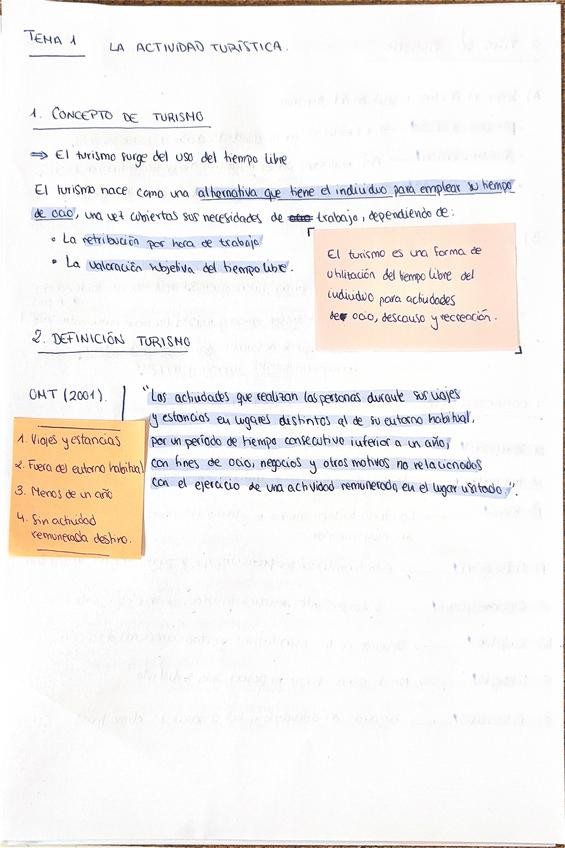 TEMA 1 LA ACTIVIDAD TURÍSTICA.
1. CONCEPTO DE TURISMO
⇒ El turismo surge del uso del tiempo libre
El turismo nace como una alternativa que tiene el individuo para emplear su tiempo
de ocio, una vez cubiertas sus necesidades de trabajo, dependiendo de:
• La retribución por hora de trabajo
• La valoración subjetiva del tiempo libre.
El turismo es una forma de
utilización del tiempo libre del
individuo para actividades
de ocio, descanso y recreación.
2. DEFINICIÓN TURISMO
OMT (2001).
"Las actividades que realizan las personas durante sus viajes
y estancias en lugares distintos al de su entorno habitual,
por un período de tiempo consecutivo inferior a un año,
con fines de ocio, negocios y otros motivos no relacionados
con el ejercicio de una actividad remunerada en el lugar visitado."
1. Viajes y estancias
2. Fuera del entorno habitual
3. Menos de un año
4. Sin actividad
remunerada destino.